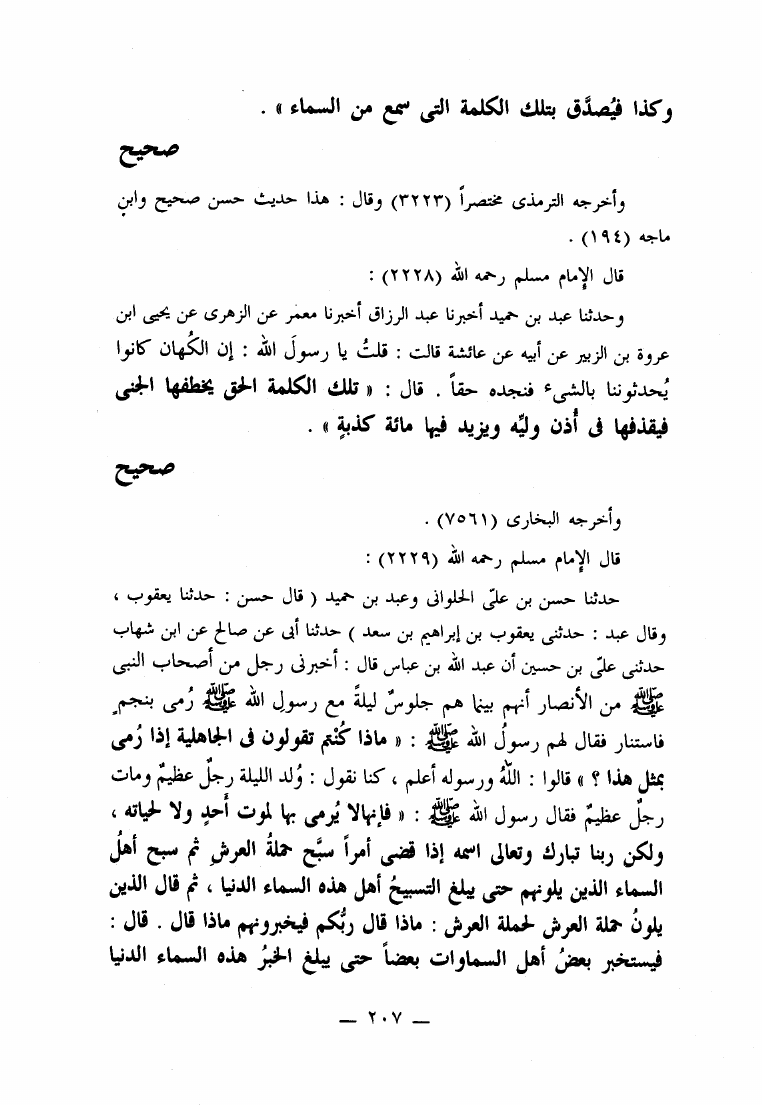 وكذا فيُصدَّق بتلك الكلمة التى سمع من السماء » .
صحيح
وأخرجه الترمذى مختصراً (٣٢٢٣) وقال : هذا حديث حسن صحيح وابن
ماجه (١٩٤) .
قال الإمام مسلم رحمه الله (٢٢٢٨) :
وحدثنا عبد بن حميد أخبرنا عبد الرزاق أخبرنا معمر عن الزهرى عن يحيى ابن
عروة بن الزبير عن أبيه عن عائشة قالت : قلتُ يا رسولَ الله : إن الكُهان كانوا
يُحدثوننا بالشىء فنجده حقاً . قال : « تلك الكلمة الحق يخطفها الجنى
فيقذفها فى أُذن وليِّه ويزيد فيها مائة كذبةٍ » .
صحيح
وأخرجه البخارى (٧٥٦١) .
قال الإمام مسلم رحمه الله (٢٢٢٩) :
حدثنا حسن بن علىّ الحلوانى وعبد بن حميد ( قال حسن : حدثنا يعقوب ،
وقال عبد : حدثنى يعقوب بن إبراهيم بن سعد ) حدثنا أبى عن صالح عن ابن شهاب
حدثنى علىّ بن حسين أن عبد الله بن عباس قال : أخبرنى رجل من أصحاب النبى
ﷺ من الأنصار أنهم بينما هم جلوسٌ ليلةً مع رسولِ الله ﷺ رُمى بنجمٍ
فاستنار فقال لهم رسولُ الله ﷺ : « ماذا كُنتم تقولون فى الجاهلية إذا رُمى
بمثل هذا ؟ » قالوا : اللهُ ورسوله أعلم ، كنا نقول : وُلد الليلة رجلٌ عظيمٌ ومات
رجلٌ عظيمٌ فقال رسول الله ﷺ : « فإنهالا يُرمى بها لموت أَحدٍ ولا لحياته ،
ولكن ربنا تبارك وتعالى اسمه إذا قضى أمراً سبَّح حملةُ العرشِ ثم سبح أهلُ
السماء الذين يلونهم حتى يبلغ التسبيحُ أهل هذه السماء الدنيا ، ثم قال الذين
يلونُ حملة العرش لحملة العرش : ماذا قال ربُّكم فيخبرونهم ماذا قال . قال :
فيستخبر بعضُ أهل السماوات بعضاً حتى يبلغ الخبرُ هذه السماء الدنيا
— ٢٠٧ —